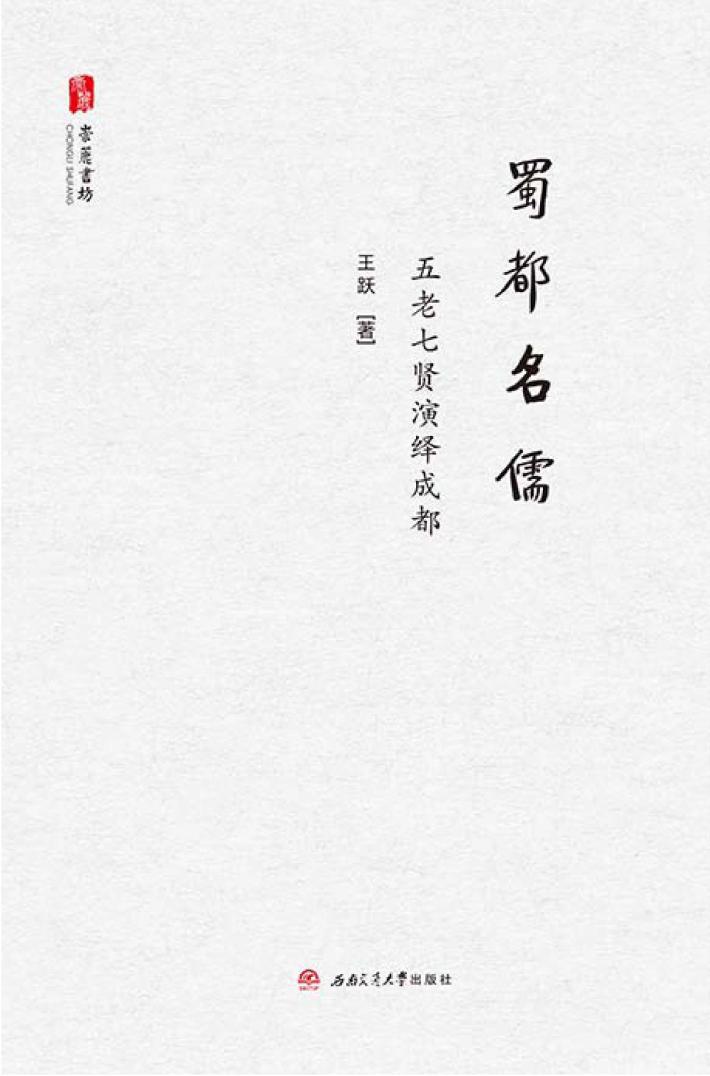 蜀都名儒
五老七贤演绎成都
王跃 [著]
崇麗書坊
CHONGLI SHUFANG
西南交通大学出版社